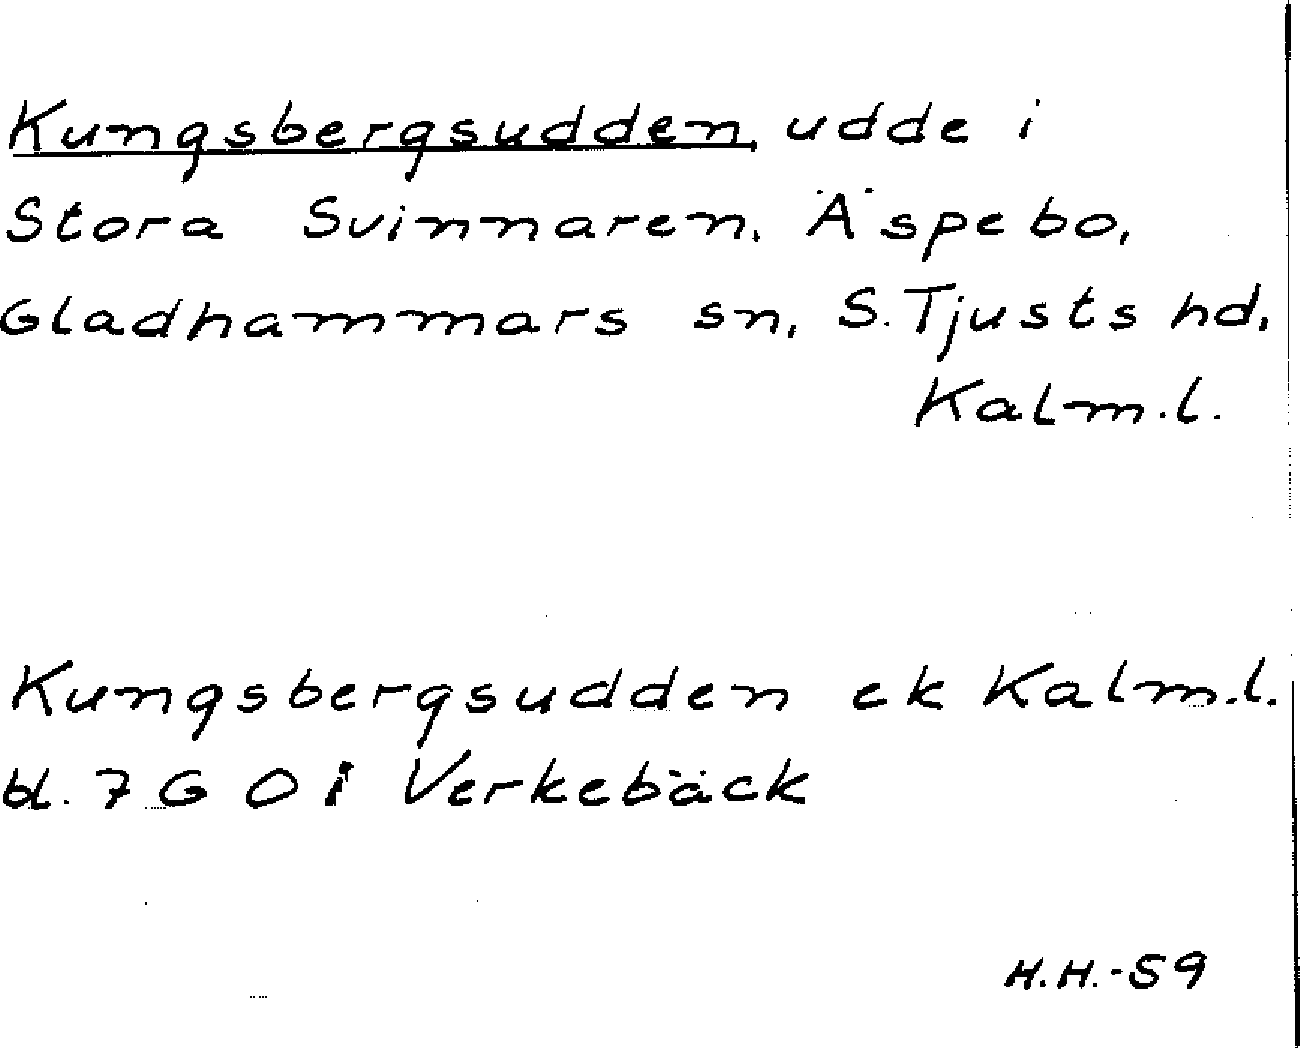 Kungsbergsudden, udde i
Stora Svinnaren, Äspebo,
Gladhammars sn, S. Tjusts hd,
Kalm.l.
Kungsbergsudden ek Kalm.l.
bl. 7 G O i Verkebäck
H.H.-59